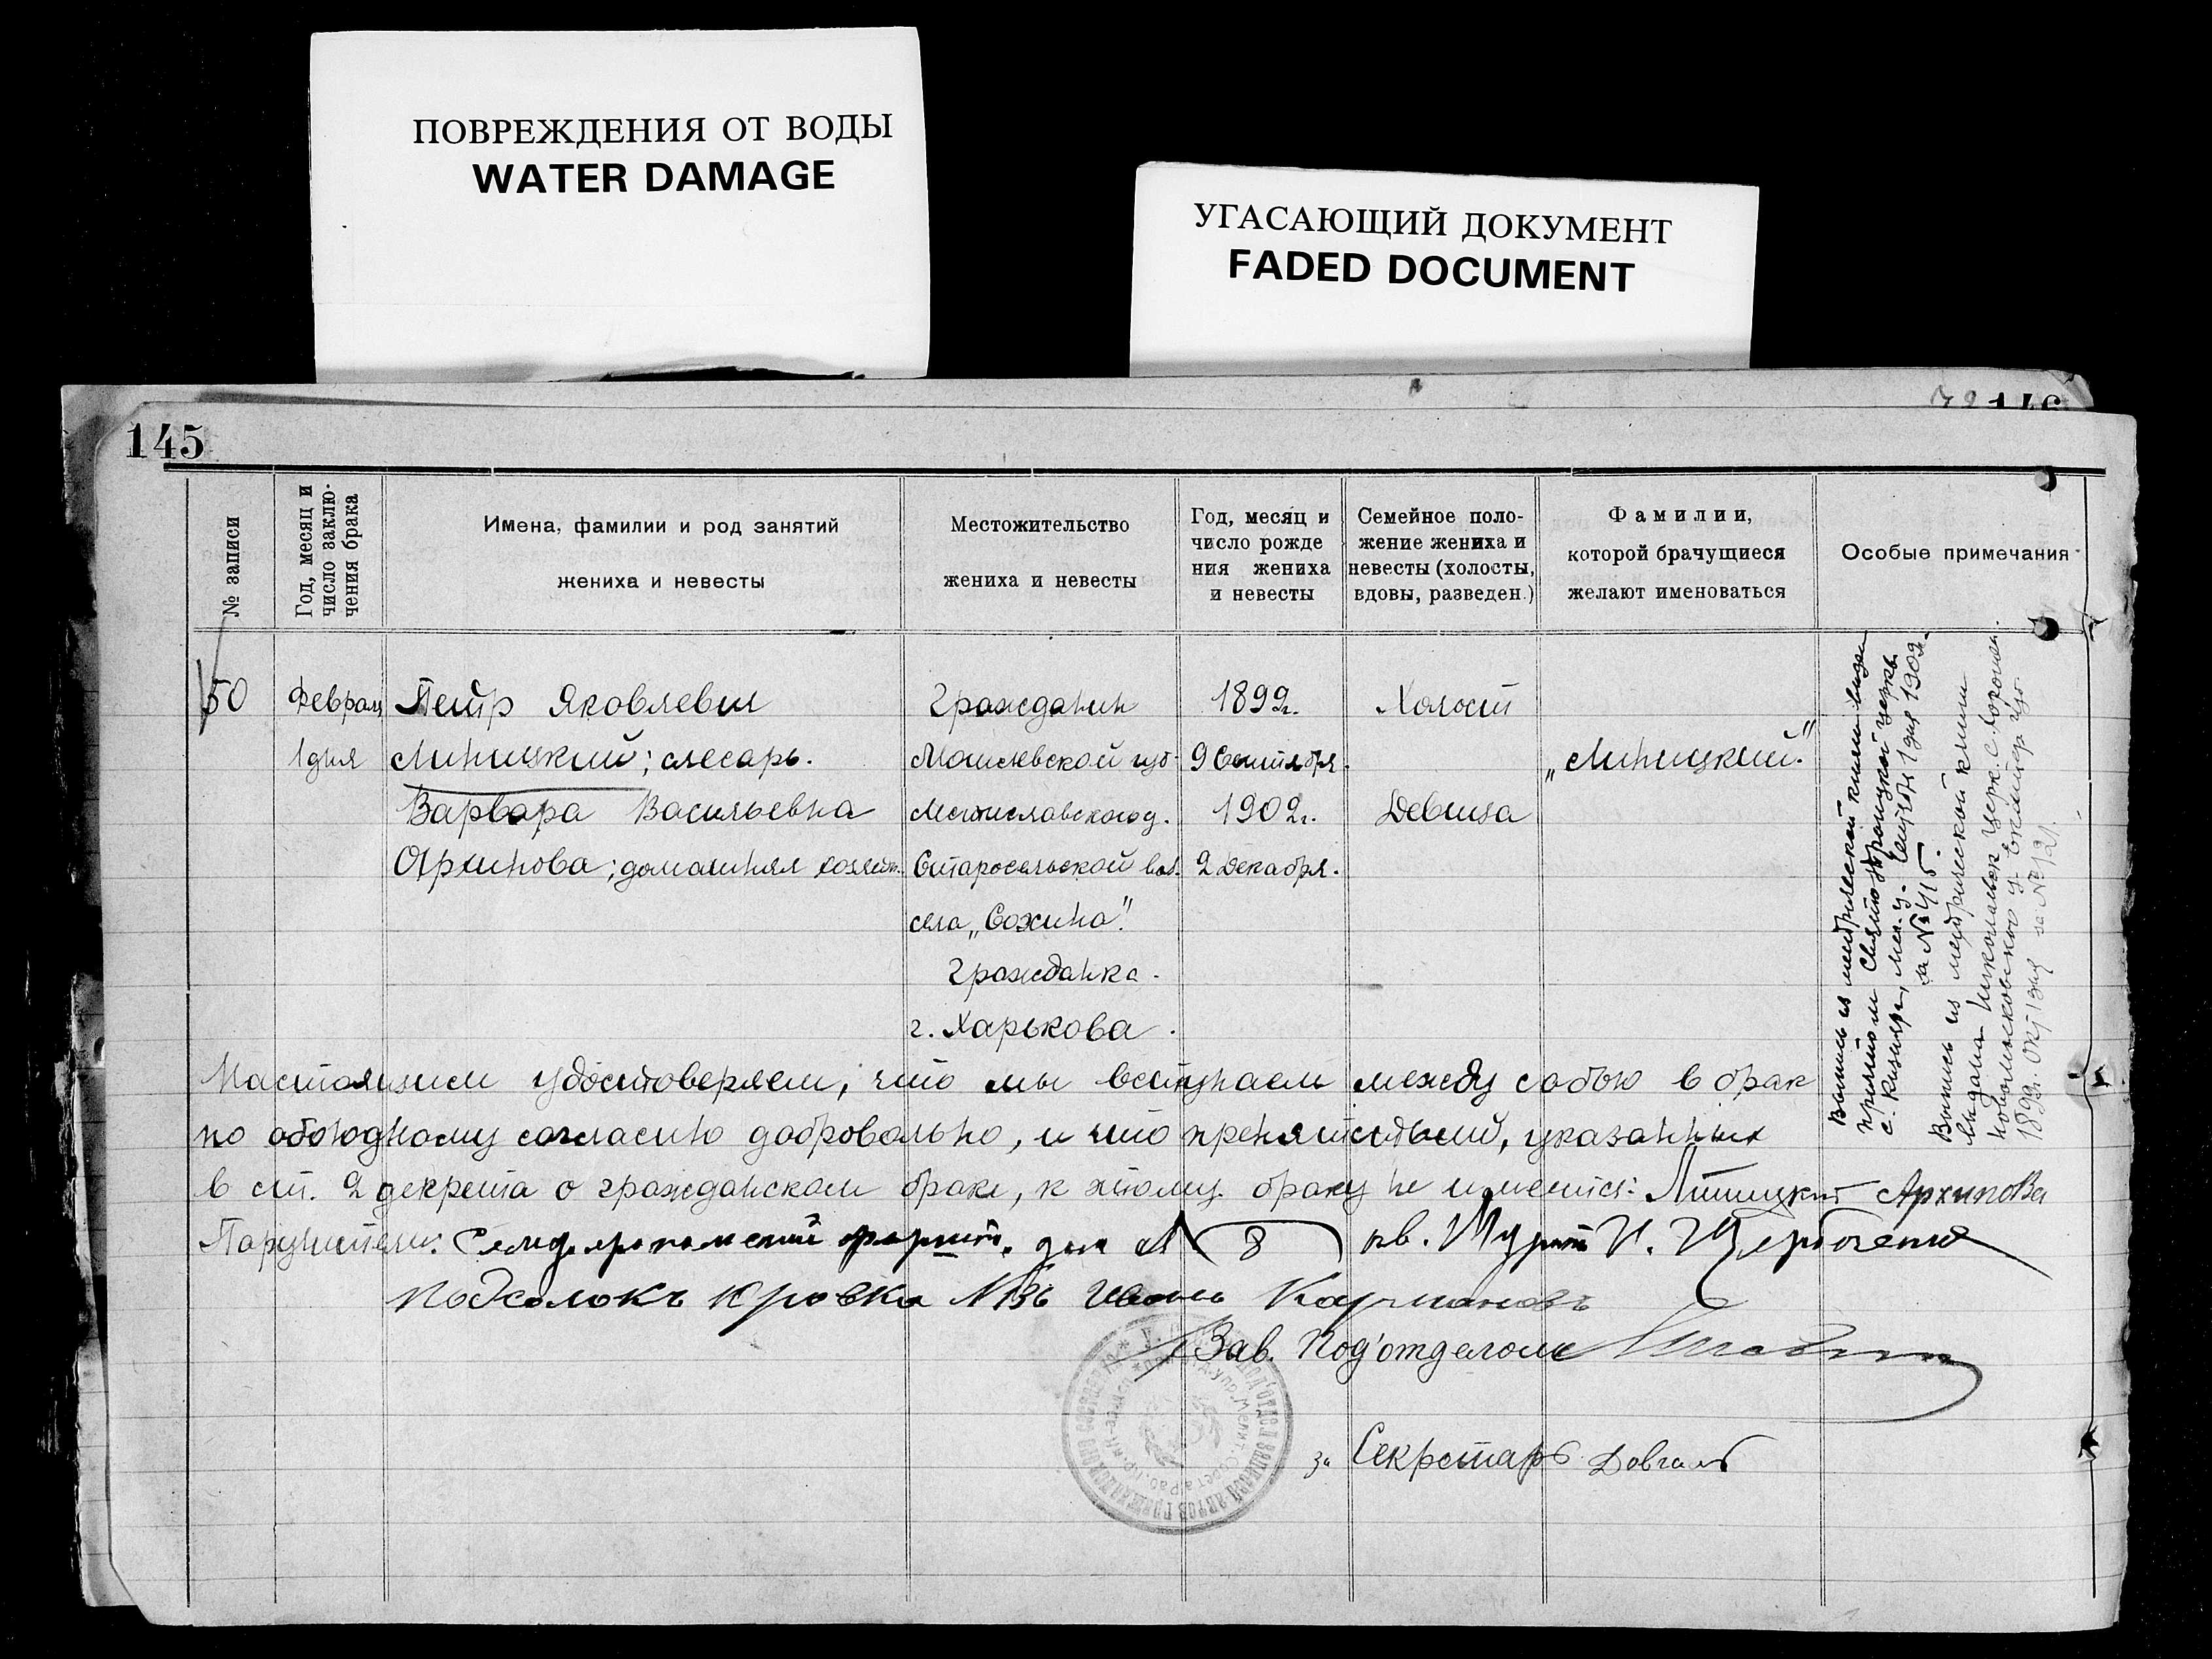 ПОВРЕЖДЕНИЯ ОТ ВОДЫ
WATER DAMAGE
УГАСАЮЩИЙ ДОКУМЕНТ
FADED DOCUMENT
146
145
№ записи
Год, месяц и
число заклю-
чения брака
Имена, фамилии и род занятий
жениха и невесты
Местожительство
жениха и невесты
Год, месяц и
число рожде
ния жениха
и невесты
Семейное поло-
жение жениха и
невесты (холосты,
вдовы, разведен.)
Фамилии,
которой брачущиеся
желают именоваться
Особые примечания
50
Феврал
1 дня
Петр Яковлевич
Линицкий; слесарь.
Варвара Васильевна
Архипова; домашняя хозяйк.
Гражданин
Могилевской губ.
Мстиславского у.
Старосельской вол.
села „Сохино"
Гражданка
г. Харькова.
1899г.
9 Сентября.
1902г.
2 Декабря.
Холост
Девица
„Линицкий."
Выпись из метрической книги
Свято Троицкой церкв.
1 дня 1909г.
за № 415.
Выпись из метрической книги
выдана Николаевск. церк.
за № 121.
Настоящим удостоверяем, что мы вступаем между собою в брак
по обоюдному согласию добровольно, и что препятствий, указанных
в ст. 2 декрета о гражданском браке, к этому браку не имеется: Линицкий Архипова
дом № 8 кв. И. Щербоченя
Юровка № 36 Иванъ Кармановъ
Зав. Под'отделом
за Секретарь Довгаль